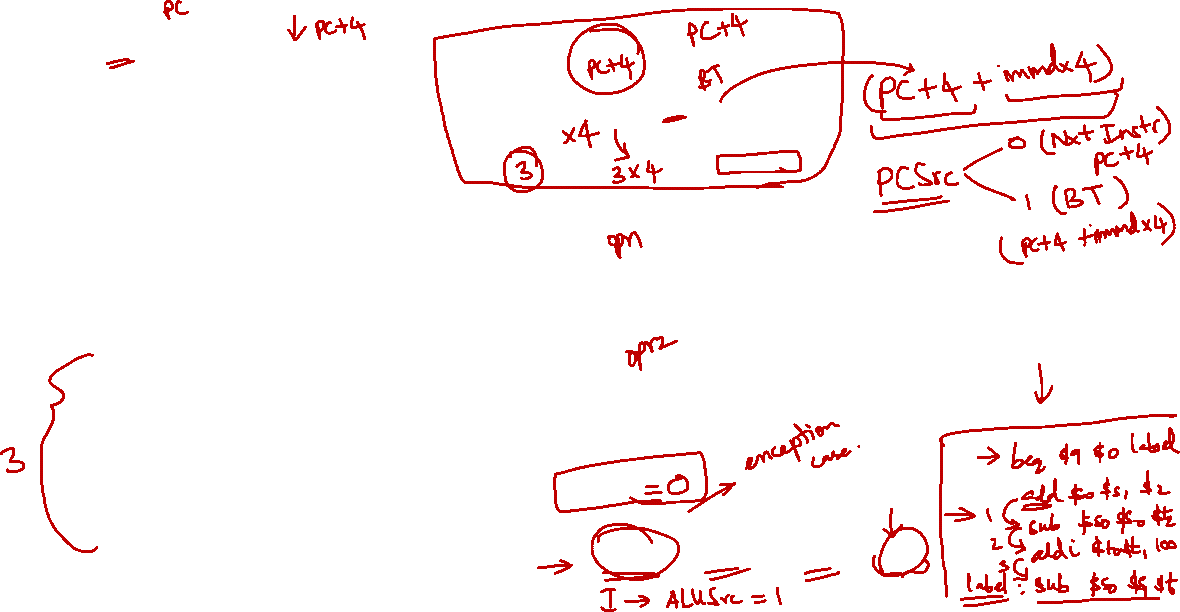 PC
↓ PC+4
PC+4
PC+4
BT
(PC+4 + immdx4)
x4
3
3x4
PCSrc
0 (Nxt Instr)
PC+4
1 (BT)
(PC+4 + immdx4)
opr1
opr2
3
exception
case.
= 0
I → ALUSrc = 1
→ beq $9 $0 label
add $s0 $s1 $2
→ 1 sub $s0 $s0 $t2
2 addi $t0 $t1 100
3
label : sub $s0 $9 $t